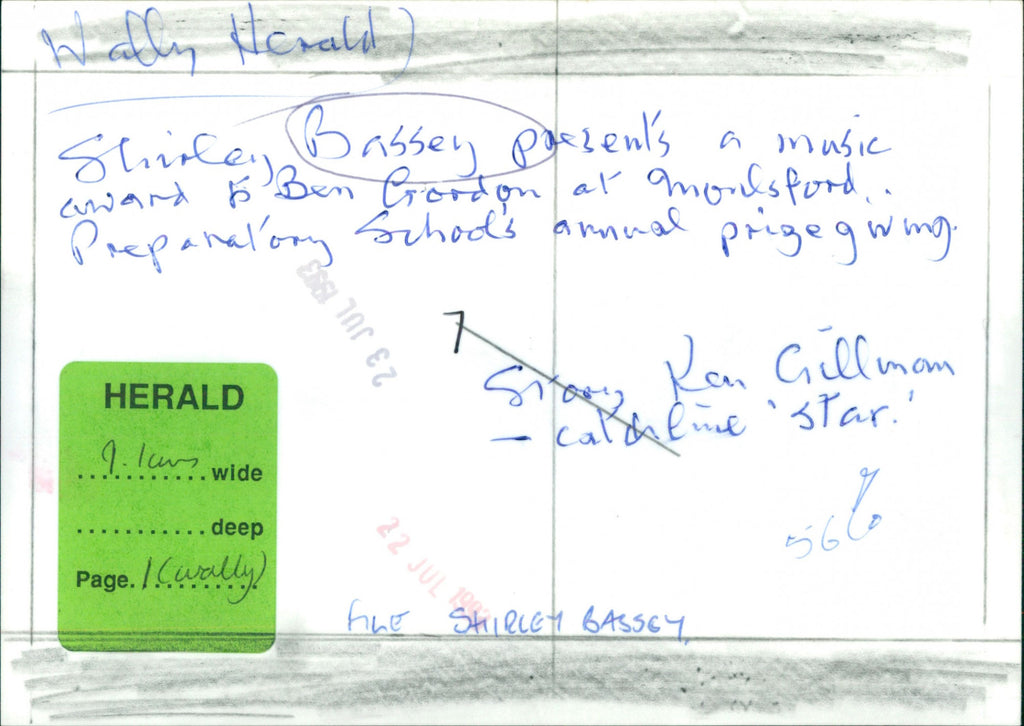 Wally Herald)
Shirley Bassey presents a music
award to Ben Gordon at Moulsford
Preparatory School's annual prizegiving.
23 JUL 1993
7
Story Ken Gillman
- catchline 'star.'
HERALD
wide
deep
Page. 1 (wally)
56%
22 JUL 1993
FILE SHIRLEY BASSEY